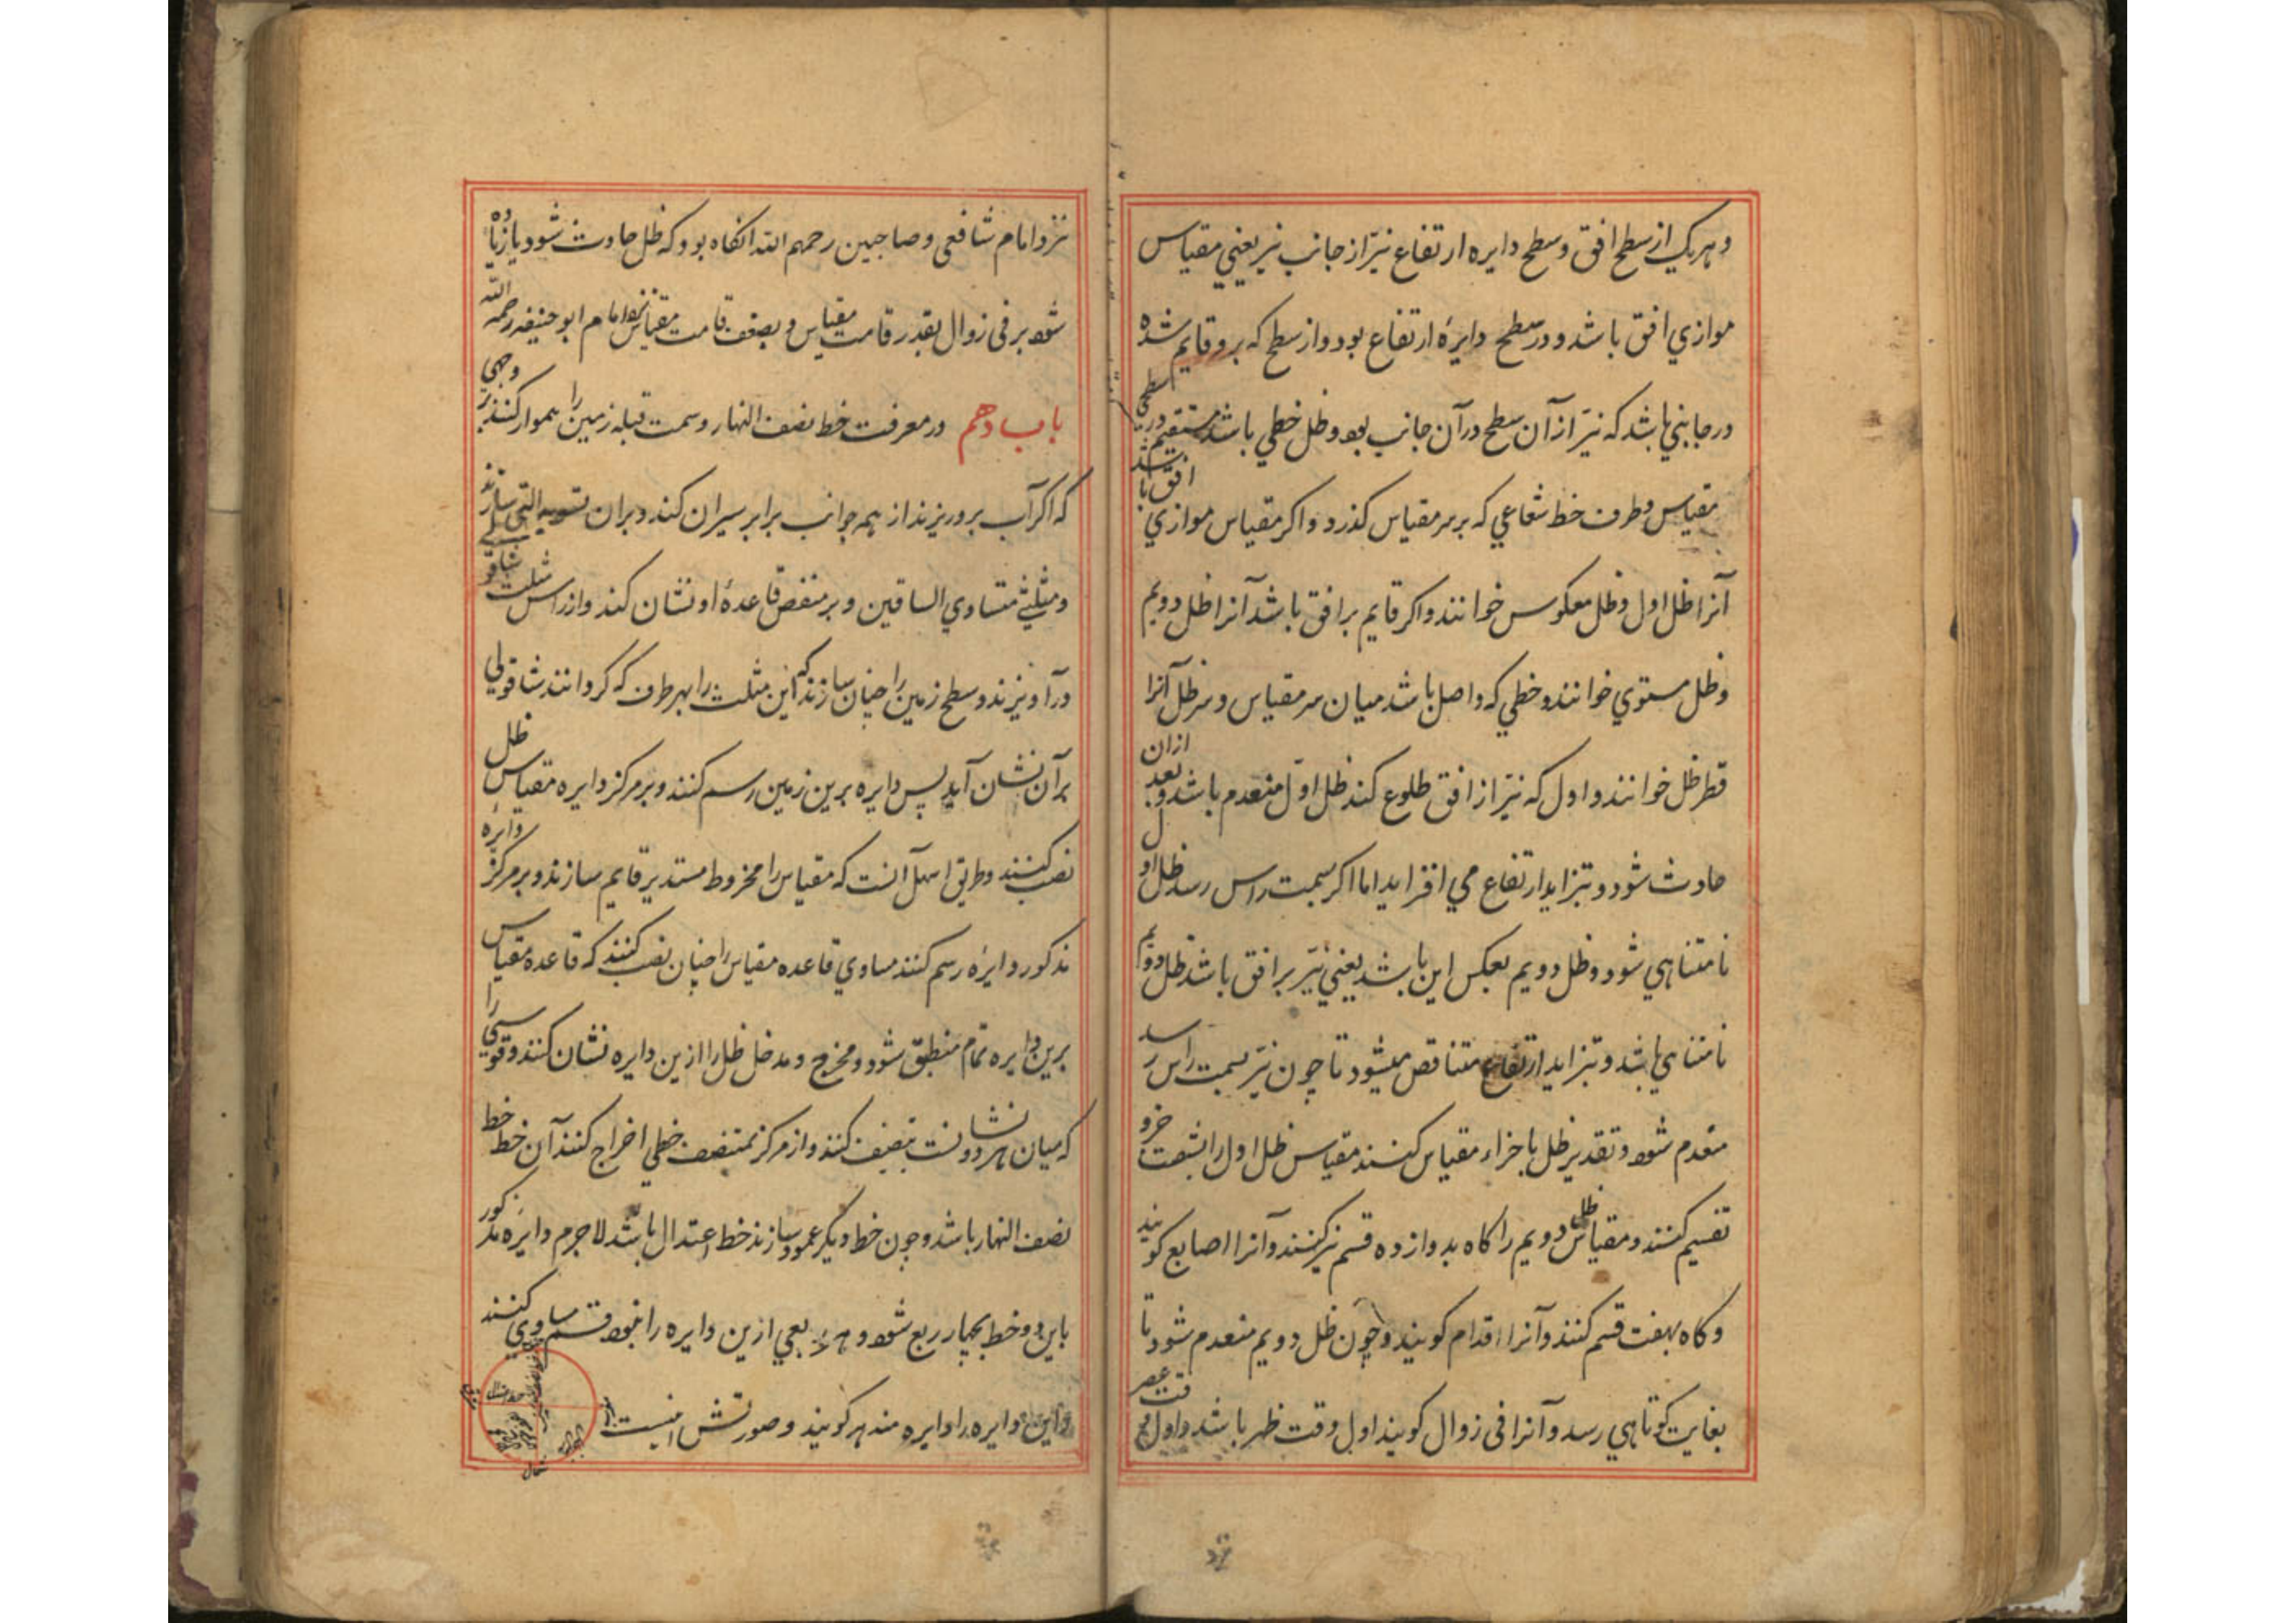 و هریک از سطح افق و سطح دایره ارتفاع نیّر از جانب نیر یعنی مقیاس
موازی افق باشد و در سطح دایرهٔ ارتفاع بود و از سطح که برو قایم شده
در جانبی باشد که نیّر از آن سطح در آن جانب بود و ظل خطی باشد مستقیم در سطحی
مقیاس و طرف خط شعاعی که بر سر مقیاس گذرد و اگر مقیاس موازی افق باشد
آنرا ظل اول و ظل معکوس خوانند و اگر قایم بر افق باشد آنرا ظل دویم
و ظل مستوی خوانند و خطی که واصل باشد میان سر مقیاس و سر ظل آنرا
قطر ظل خوانند و اول که نیّر از افق طلوع کند ظل اوّل منعدم باشد و بعد ازان
حادث شود و بتزاید ارتفاع می افزاید اما اگر بسمت راس رسد ظل اول
نامتناهی شود و ظل دویم بعکس این باشد یعنی نیّر بر افق باشد ظل دویم
نامتناهی باشد و بتزاید ارتفاع متناقص میشود تا چون نیّر بسمت راس رسد
منعدم شود و تقدیر ظل باجزاء مقیاس کنند مقیاس ظل اول را بشصت جزو
تقسیم کنند و مقیاس ظل دویم را گاه بدوازده قسم نیز کنند و آنرا اصابع گویند
و گاه بهفت قسم کنند و آنرا اقدام گویند و چون ظل دویم منعدم شود تا
بغایت کوتاهی رسد و آنرا فی زوال گویند اول وقت ظهر باشد و اول وقت عصر
نزد امام شافعی و صاحبین رحمهم الله انگاه بود که ظل حادث شود یا زیاده
شود بر فی زوال بقدر قامت مقیاس و بضعف قامت مقیاس نزد امام ابو حنیفه رحمه الله
باب دهم در معرفت خط نصف النهار و سمت قبله زمین را هموار کنند بر وجهی
که اگر آب برو ریزند از همه جوانب برابر سیران کند و بران تسویه التی سازند
و مثلثی متساوی الساقین و بر منصف قاعدهٔ او نشان کند و از راس مثلث شاقو
در آویزند و سطح زمین را چنان سازند که این مثلث را بهر طرف که گردانند شاقولی
بر آن نشان آید پس دایره برین زمین رسم کنند و بر مرکز دایره مقیاس ظل
نصب کنند و طریق اسهل آنست که مقیاس را مخروط مستدیر قایم سازند و بر مرکز دایرهٔ
مذکور دایرهٔ رسم کنند مساوی قاعده مقیاس را چنان نصب کنند که قاعده مقیاس
برین دایره تمام منطبق شود و مخرج و مدخل ظل را ازین دایره نشان کنند و قوسی را
که میان هر دو نشانست تنصیف کنند و از مرکز بمنتصف خطی اخراج کنند آن خط خط
نصف النهار باشد و چون خط دیگر عمود سازند خط اعتدال باشد لاجرم دایره مذکور
باین دو خط بچهار ربع شود و هر ربعی ازین دایره را بنود قسم مساوی کنند
و این دایره را دایره هندیه گویند و صورتش اینست
شمال